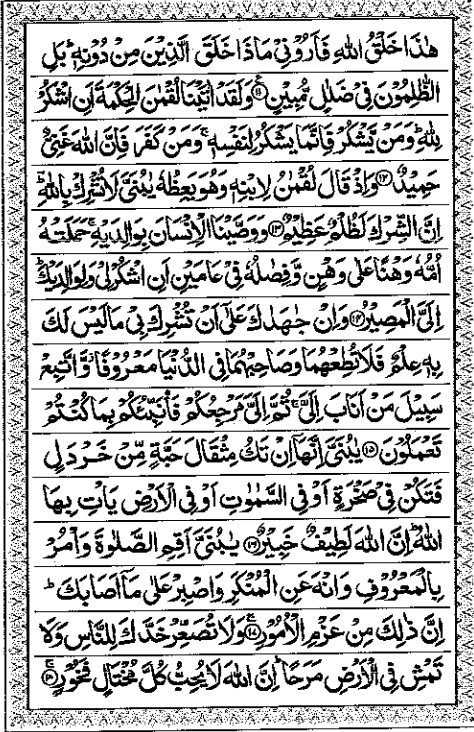 هٰذَا خَلْقُ اللّٰهِ فَاَرُوْنِيْ مَاذَا خَلَقَ الَّذِيْنَ مِنْ دُوْنِهٖ ؕ بَلِ
الظّٰلِمُوْنَ فِيْ ضَلٰلٍ مُّبِيْنٍ ﴿۱۱﴾ وَلَقَدْ اٰتَيْنَا لُقْمٰنَ الْحِكْمَةَ اَنِ اشْكُرْ
لِلّٰهِ ؕ وَمَنْ يَّشْكُرْ فَاِنَّمَا يَشْكُرُ لِنَفْسِهٖ ۚ وَمَنْ كَفَرَ فَاِنَّ اللّٰهَ غَنِيٌّ
حَمِيْدٌ ﴿۱۲﴾ وَاِذْ قَالَ لُقْمٰنُ لِابْنِهٖ وَهُوَ يَعِظُهٗ يٰبُنَيَّ لَا تُشْرِكْ بِاللّٰهِ ؕ
اِنَّ الشِّرْكَ لَظُلْمٌ عَظِيْمٌ ﴿۱۳﴾ وَوَصَّيْنَا الْاِنْسَانَ بِوَالِدَيْهِ ۚ حَمَلَتْهُ
اُمُّهٗ وَهْنًا عَلٰى وَهْنٍ وَّفِصٰلُهٗ فِيْ عَامَيْنِ اَنِ اشْكُرْ لِيْ وَلِوَالِدَيْكَ ؕ
اِلَيَّ الْمَصِيْرُ ﴿۱۴﴾ وَاِنْ جٰهَدٰكَ عَلٰٓى اَنْ تُشْرِكَ بِيْ مَا لَيْسَ لَكَ
بِهٖ عِلْمٌ فَلَا تُطِعْهُمَا وَصَاحِبْهُمَا فِي الدُّنْيَا مَعْرُوْفًا ؗ وَّاتَّبِعْ
سَبِيْلَ مَنْ اَنَابَ اِلَيَّ ۚ ثُمَّ اِلَيَّ مَرْجِعُكُمْ فَاُنَبِّئُكُمْ بِمَا كُنْتُمْ
تَعْمَلُوْنَ ﴿۱۵﴾ يٰبُنَيَّ اِنَّهَآ اِنْ تَكُ مِثْقَالَ حَبَّةٍ مِّنْ خَرْدَلٍ
فَتَكُنْ فِيْ صَخْرَةٍ اَوْ فِي السَّمٰوٰتِ اَوْ فِي الْاَرْضِ يَاْتِ بِهَا
اللّٰهُ ؕ اِنَّ اللّٰهَ لَطِيْفٌ خَبِيْرٌ ﴿۱۶﴾ يٰبُنَيَّ اَقِمِ الصَّلٰوةَ وَاْمُرْ
بِالْمَعْرُوْفِ وَانْهَ عَنِ الْمُنْكَرِ وَاصْبِرْ عَلٰى مَآ اَصَابَكَ ؕ
اِنَّ ذٰلِكَ مِنْ عَزْمِ الْاُمُوْرِ ﴿۱۷﴾ وَلَا تُصَعِّرْ خَدَّكَ لِلنَّاسِ وَلَا
تَمْشِ فِي الْاَرْضِ مَرَحًا ؕ اِنَّ اللّٰهَ لَا يُحِبُّ كُلَّ مُخْتَالٍ فَخُوْرٍ ﴿۱۸﴾